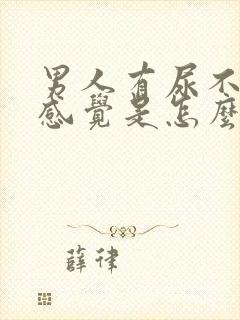 男人有尿不
感覺是怎麼
薛律